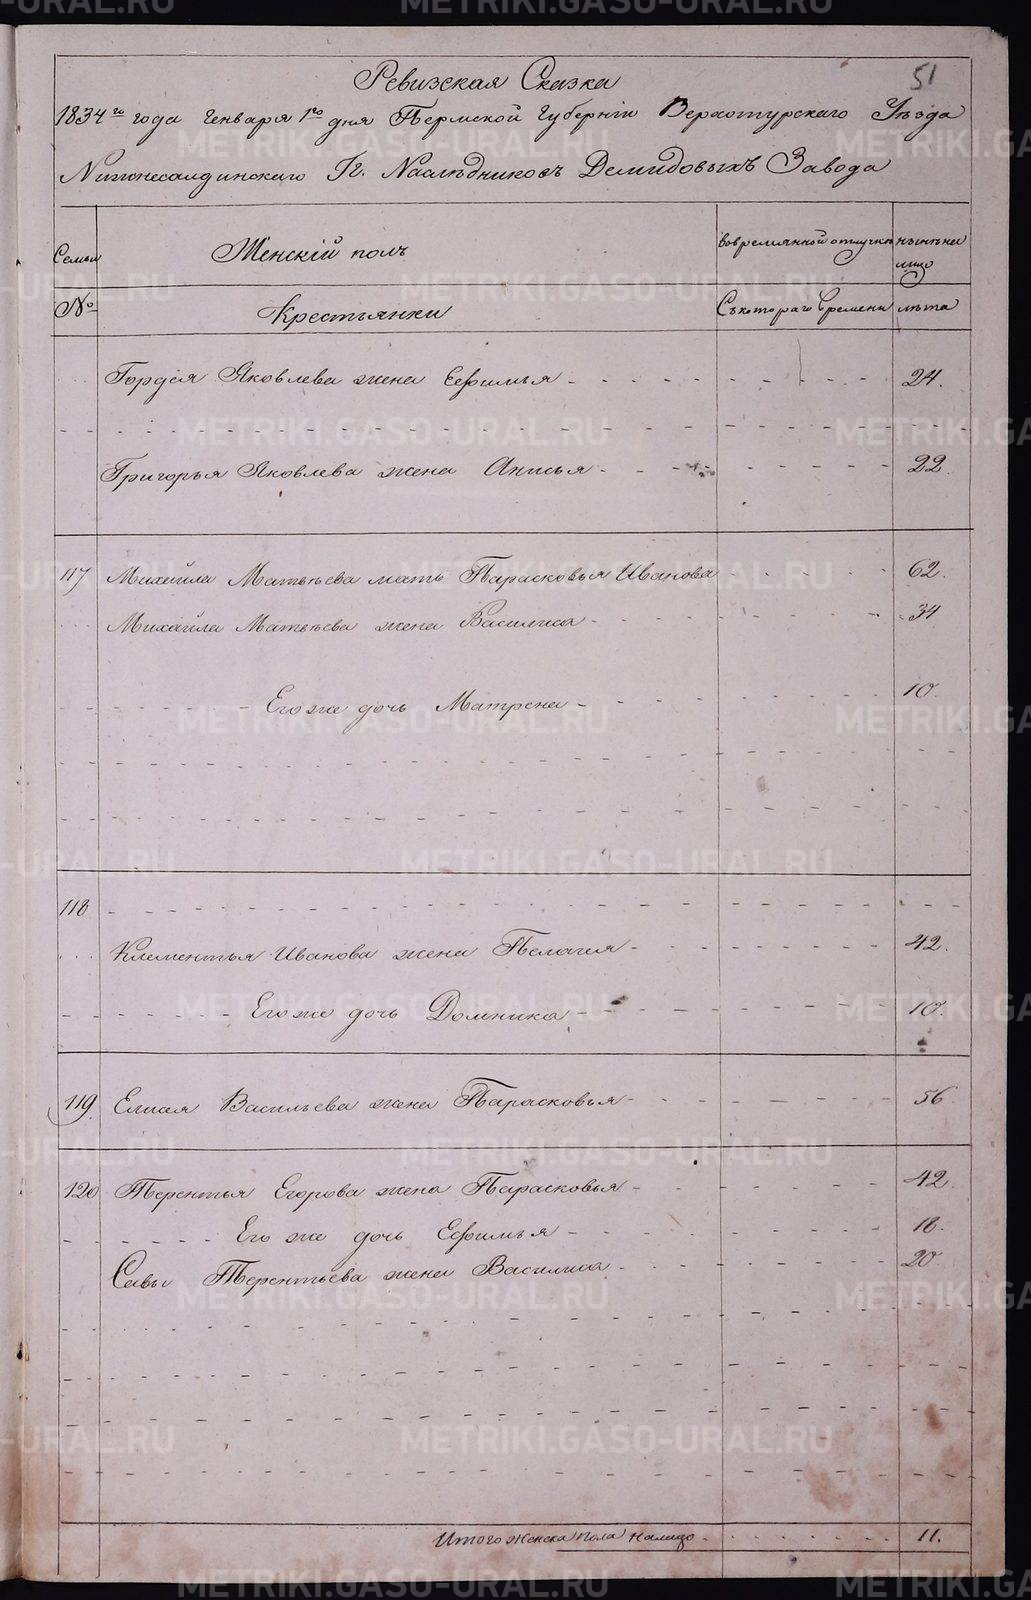 51
Ревизская Сказка
1834го года Генваря 1го дня Пермской Губерніи Верхотурскаго Уѣзда
Нижнесалдинскаго Гг. Наслѣдниковъ Демидовыхъ Завода
Семьи Женскій полъ вовременной отлучке нынѣ на лицо
№ Крестьянки Съкотораго времени лѣта
Гордѣя Яковлева жена Ефимья 24.
Григорья Яковлева жена Анисья 22.
117 Михайла Матвѣева мать Парасковья Иванова 62.
Михайла Матвѣева жена Василиса 34
Его же дочь Матрена 10.
118
Климентья Иванова жена Пелагия 42.
Его же дочь Домника 10.
119. Елисея Васильева жена Парасковья 56.
120 Терентья Егорова жена Парасковья 42.
Его же дочь Ефимья 18.
Савы Терентьева жена Василиса 20
Итого женска пола налицо 11.
METRIKI.GASO-URAL.RU